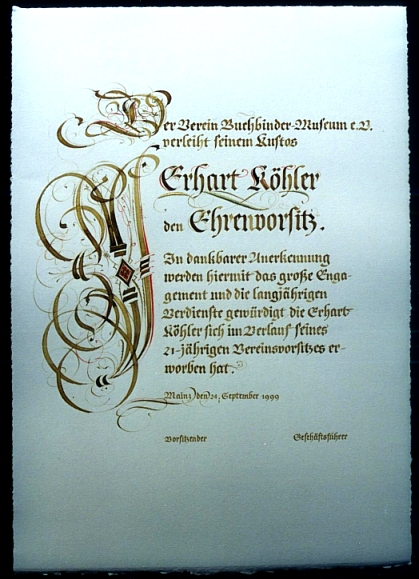 Der Verein Buchbinder-Museum e.V.
verleiht seinem Kustos
Erhart Köhler
den Ehrenvorsitz.
In dankbarer Anerkennung
werden hiermit das große Enga-
gement und die langjährigen
Verdienste gewürdigt die Erhart
Köhler sich im Verlauf seines
21-jährigen Vereinsvorsitzes er-
worben hat.
Mainz, den 21. September 1999
Vorsitzender Geschäftsführer